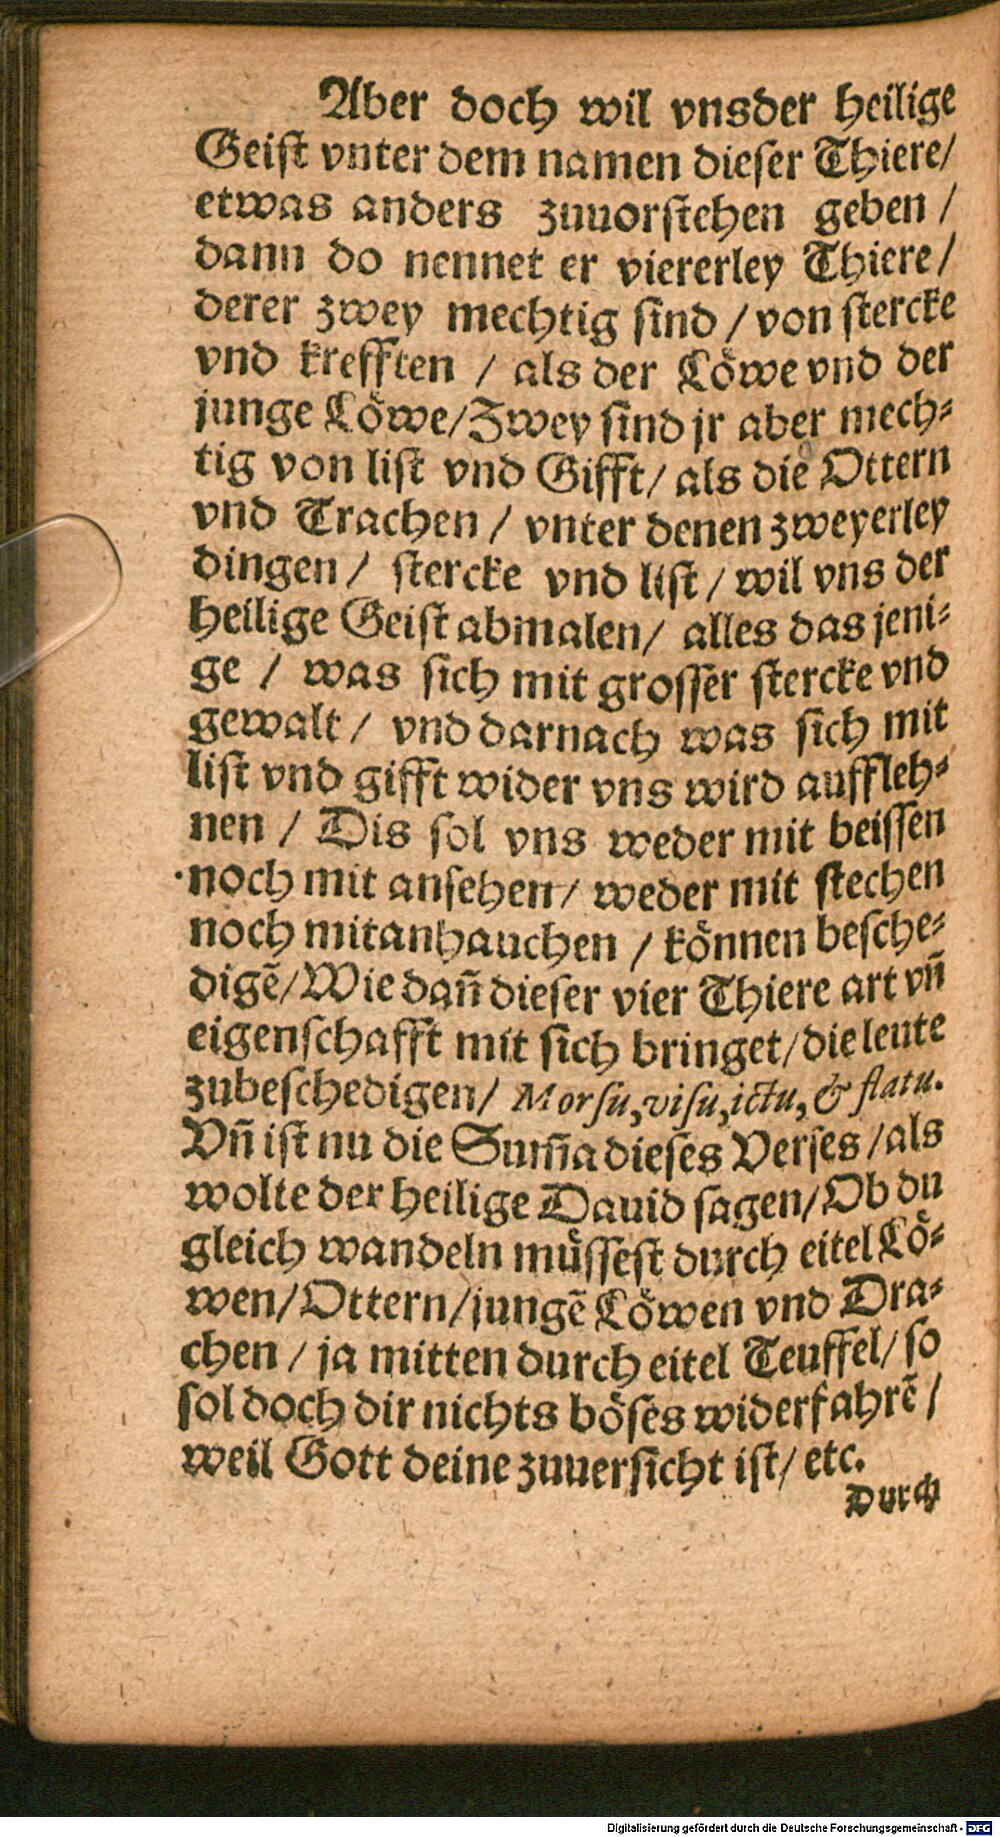 Aber doch wil vnsder heilige
Geist vnter dem namen dieser Thiere/
etwas anders zuuorstehen geben /
dann do nennet er viererley Thiere/
derer zwey mechtig sind / von stercke
vnd krefften / als der Löwe vnd der
junge Löwe/Zwey sind jr aber mech⸗
tig von list vnd Gifft/ als die Ottern
vnd Trachen / vnter denen zweyerley
dingen / stercke vnd list / wil vns der
heilige Geist abmalen/ alles das jeni⸗
ge / was sich mit grosser stercke vnd
gewalt / vnd darnach was sich mit
list vnd gifft wider vns wird auffleh⸗
nen / Dis sol vns weder mit beissen
noch mit ansehen / weder mit stechen
noch mitanhauchen / können besche⸗
digē/Wie dañ dieser vier Thiere art vñ
eigenschafft mit sich bringet/die leute
zubeschedigen/ Morsu,visu,ictu, & flatu.
Vñ ist nu die Sum̃a dieses Verses /als
wolte der heilige Dauid sagen/Ob du
gleich wandeln müssest durch eitel Lö⸗
wen/Ottern/jungē Löwen vnd Dra⸗
chen / ja mitten durch eitel Teuffel/ so
sol doch dir nichts böses widerfahrē /
weil Gott deine zuuersicht ist/ etc.
Durch
Digitalisierung gefördert durch die Deutsche Forschungsgemeinschaft - DFG